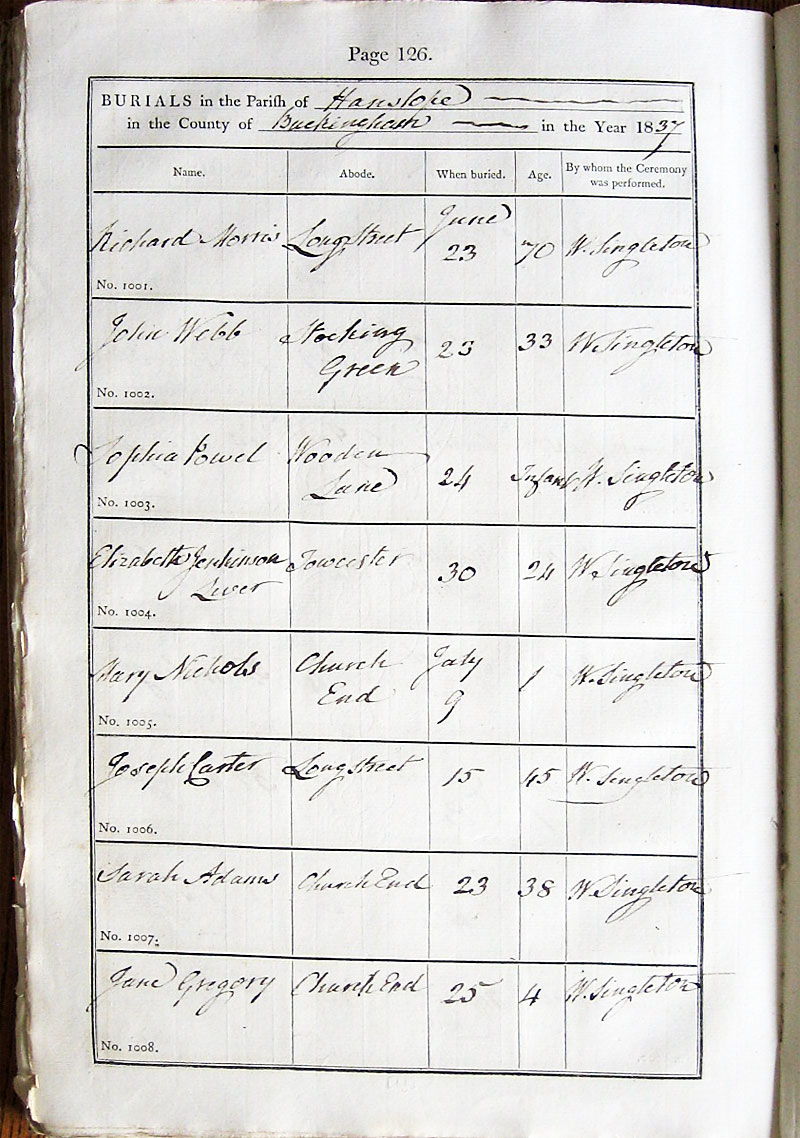 Page 126.
BURIALS in the Pariſh of Hanslope
in the County of Buckingham in the Year 1837
Name. Abode. When buried. Age. By whom the Ceremony was performed.
June
Richard Morris Longstreet 23 70 W. Singleton
No. 1001.
John Webb Stocking 23 33 W. Singleton
Green
No. 1002.
Sophia Powel Wooden
Lane 24 Infant W. Singleton
No. 1003.
Elizabeth Jenkinson Towcester 30 24 W. Singleton
No. 1004.
Mary Nichols Church July 1 W. Singleton
End 9
No. 1005.
Joseph Carter Longstreet 15 45 W. Singleton
No. 1006.
Sarah Adams Church End 23 38 W. Singleton
No. 1007.
Jane Gregory Church End 25 4 W. Singleton
No. 1008.